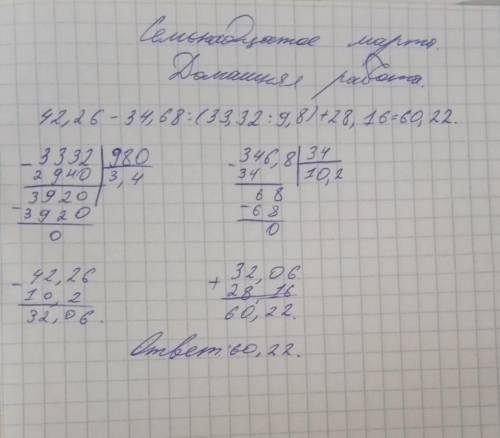 Семьнадцатое марта.
Домашняя работа.
42,26 - 34,68:(33,32:9,8)+28,16=60,22.
- 3332 | 980
2940 | 3,4
3920
- 3920
0
- 346,8 | 34
34 | 10,2
68
- 68
0
- 42,26
10,2
32,06.
+ 32,06
28,16
60,22.
Ответ:60,22.